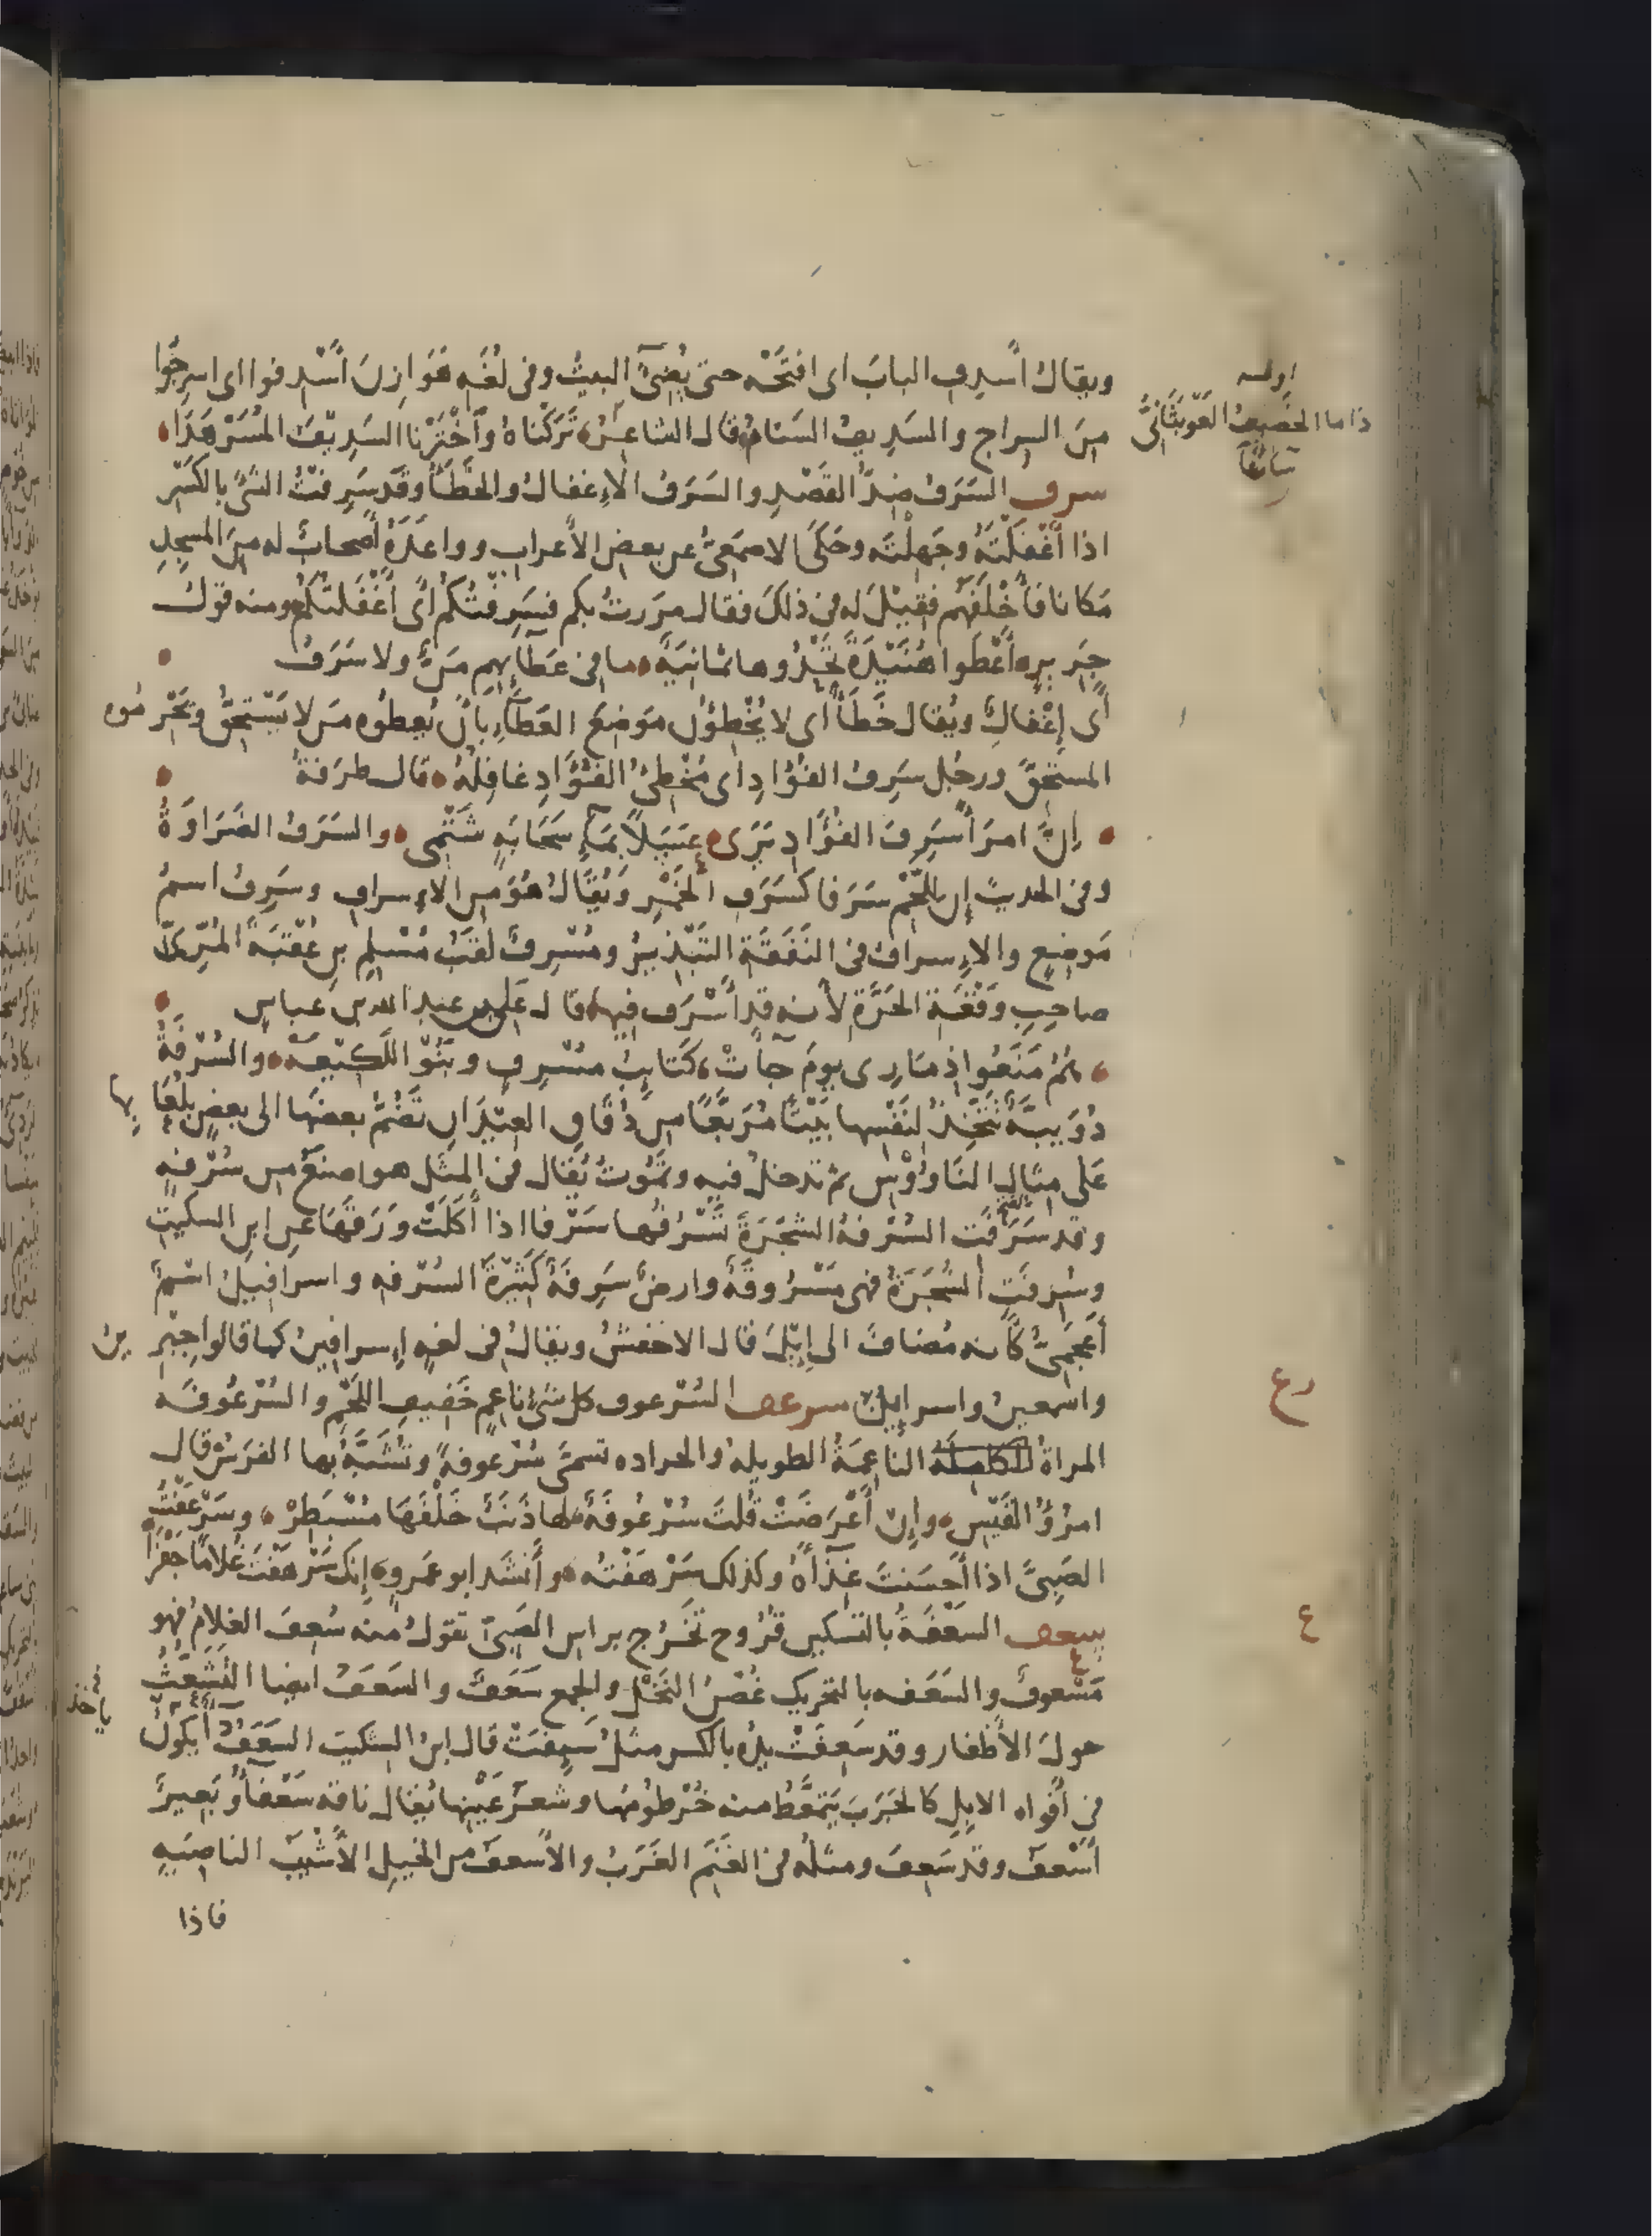 ويقال أَسدِف البابَ اى افتَحْه حتى يُضِىَٔ البيتُ وفى لُغَةِ هَوَازِنَ أَسْدِفوا اى اسرِجُوا
مِنَ السِراج والسَدِيفُ السَنَامُ قال الشاعِرُ تَرَكْنَاهُ وَاخْتَرْنا السَدِيْفَ المُسَرْهَدَا
اوله
ذا ما الخَصِيفُ العَوْبَثَانِىُّ
سَاءَنَا
سرف السَرَفُ ضِدُّ القَصْدِ والسَرَفُ الاِغفالُ والخَطَأُ وقَد سَرِفتُ الشَىَّ بالكَسْر
اذا أَغْفَلْتَهُ وجَهِلْتَه وحَكَى الاصمَعِىُّ عن بعض الأَعرابِ وواعَدَهُ أَصحابٌ له مِنَ المسجِدِ
مَكانا فأَخْلَفَهم فقِيْلَ له فى ذلكَ فقال مرَرتُ بكم فسَرِفْتُكُم أىْ أَغْفَلتُكُم ومنه قولُ
جَرِيرٍ أَعْطَوا هُنَيْدَةً تَحْدُوها ثَمانِيَةٌ ما فى عَطَآئِهِم مَنٌّ ولا سَرَفُ
أى إِغْفالٌ ويُقال خَطَأٌ أى لا يُخْطِؤُن مَوْضِعَ العَطَآءِ بأَنْ يُعطُوه مَن لا يَسْتَحِقُّ ويَحْرِمُوه
المستَحِقَّ ورجُل سَرِفُ الفُؤَادِ اى مُخْطِئُ الفُؤَادِ غافِلُهُ قال طرَفَةُ
إِنَّ امرَأً سَرِفَ الفُؤَادِ يَرَى عَسَلاً بمَآءِ سَحَابَةٍ شَتْمِى والسَرَفُ الضَرَاوَةُ
وفى الحديث إن لِلَّحْمِ سَرَفا كسَرَفِ الخَمْرِ وَيُقَالُ هُوَ من الاِسرافِ وسَرِفُ اسمُ
مَوضِعٍ والاِسرافُ فى النَفَقَةِ التَبْذِيرُ ومُسْرِفٌ لقَبُ مُسْلِمِ بن عُقْبَةَ المُرِّىِّ
صاحِبِ وَقْعَةِ الحَرَّةِ لأنه قد أَسْرَفَ فيها قال عَلِىّ بن عبد الله بن عباس
هُمُ مَنَعُوا ذِمَارِى يومَ جآءتْ كَتايبُ مُسْرِفٍ وبَنُوْ اللَّكِيْعَهْ والسُرْفَةُ
دُوَيبَّةٌ تَتَّخِذُ لنَفْسِها بَيْتًا مُرَبَّعًا من دُقَاقِ العِيْدَانِ تَضُمُّ بعضَها الى بعضٍ بِلُعَابِها
عَلى مِثالِ النَاوُوْسِ ثم تدخلُ فيه وتَمُوتُ يُقال فى المثَل هو اصنَعُ من سُرْفَةٍ
وقد سَرَفَت السُرْفَةُ الشَجَرَةَ تَسْرُفُها سَرْفا اذا أَكَلَتْ وَرَقَهَا عن ابن السكيت
وسُرِفَتِ الشَجَرَةُ فهى مَسْرُوفَةٌ وارضٌ سَرِفَةٌ كَثِيْرَةُ السُرْفه واسرافِيلُ اسْمٌ
أَعجَمِىٌّ كأنه مُضافٌ الى إِيْلَ قال الاخفشُ ويقالُ فى لغةٍ إسرافِينُ كما قالوا جِبْرِينُ
واسمعينُ واسرائِينُ سرعف السُرْعوف كل شَىْءٍ ناعِمٍ خَفِيفِ اللَّحْمِ والسُرْعُوفَه
رع
المراةُ النَاعِمَةُ الطويله والجراده تسمَّى سُرْعوفةً وتُشَبَّهُ بها الفَرَسُ قال
امرُؤُ القَيْسِ وإن أَعْرَضَتْ قُلتَ سُرْعُوفَةٌ لها ذَنَبٌ خَلْفَهَا مُسْبَطِرْ وسَرْعَفْتُ
الصَبِىَّ اذا أَحسَنتَ غِذَآءَهُ وكذلك سَرْهَفْتُه وأَنشَد ابو عَمرو إنك سَرْهَفتَ غُلامًا جَفْرَا
سعف السَعْفَةُ بالتَسكِين قُرُوح تَخْرُج براس الصَبِىّ تقولُ منه سُعِفَ الغلامُ فهو
ع
مَسْعوفٌ والسَعَفه بالتحريك غُصْنُ النَخْلِ والجمع سَعَفٌ والسَعَفُ ايضا التَشَعُّثُ
حولَ الأَظفار وقد سَعِفَتْ يدُه بالكسر مثلُ سَئِفَتْ قال ابن السكيت السَعَفُ دآءٌ يكونُ
ياخذ
فى أَفواه الابِلِ كالجَرَبِ يَتَمَعَّطُ منه خُرْطُومُها وشَعرُ عَيْنِها يُقال ناقة سَعْفَآءُ وبَعِيرٌ
أَسْعفُ وقد سَعِفَ ومثلُه فى الغَنَمِ الغَرَبُ والأَسعفُ من الخيلِ الأَشْيَبُ الناصِيَه
فاذا